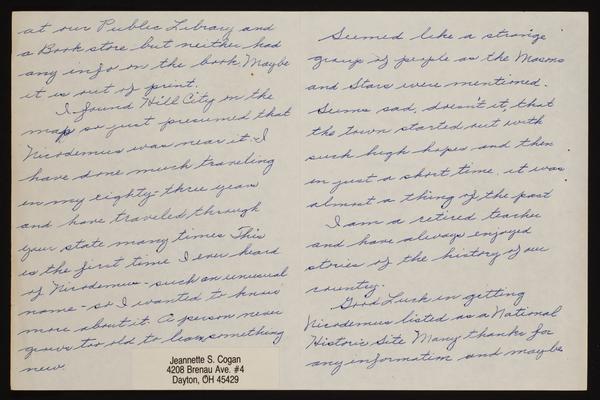 at our Public Library and
a Book store but neither had
any info on the book. Maybe
it is out of print.
I found Hill City on the
map so just presumed that
Nicodemus was near it. I
have done much traveling
in my eighty-three years
and have traveled through
your state many times. This
is the first time I ever heard
of Nicodemus - such an unusual
name - so I wanted to know
more about it. A person never
grows too old to learn something
new.
Jeannette S. Cogan
4208 Brenau Ave. #4
Dayton, OH 45429
Seemed like a strange
group of people as the Masons
and Stars were mentioned.
Seems sad, doesn't it, that
the town started out with
such high hopes and then
in just a short time, it was
almost a thing of the past
I am a retired teacher
and have always enjoyed
stories of the history of our
country.
Good Luck in getting
Nicodemus listed as a National
Historic Site Many thanks for
any information and maybe